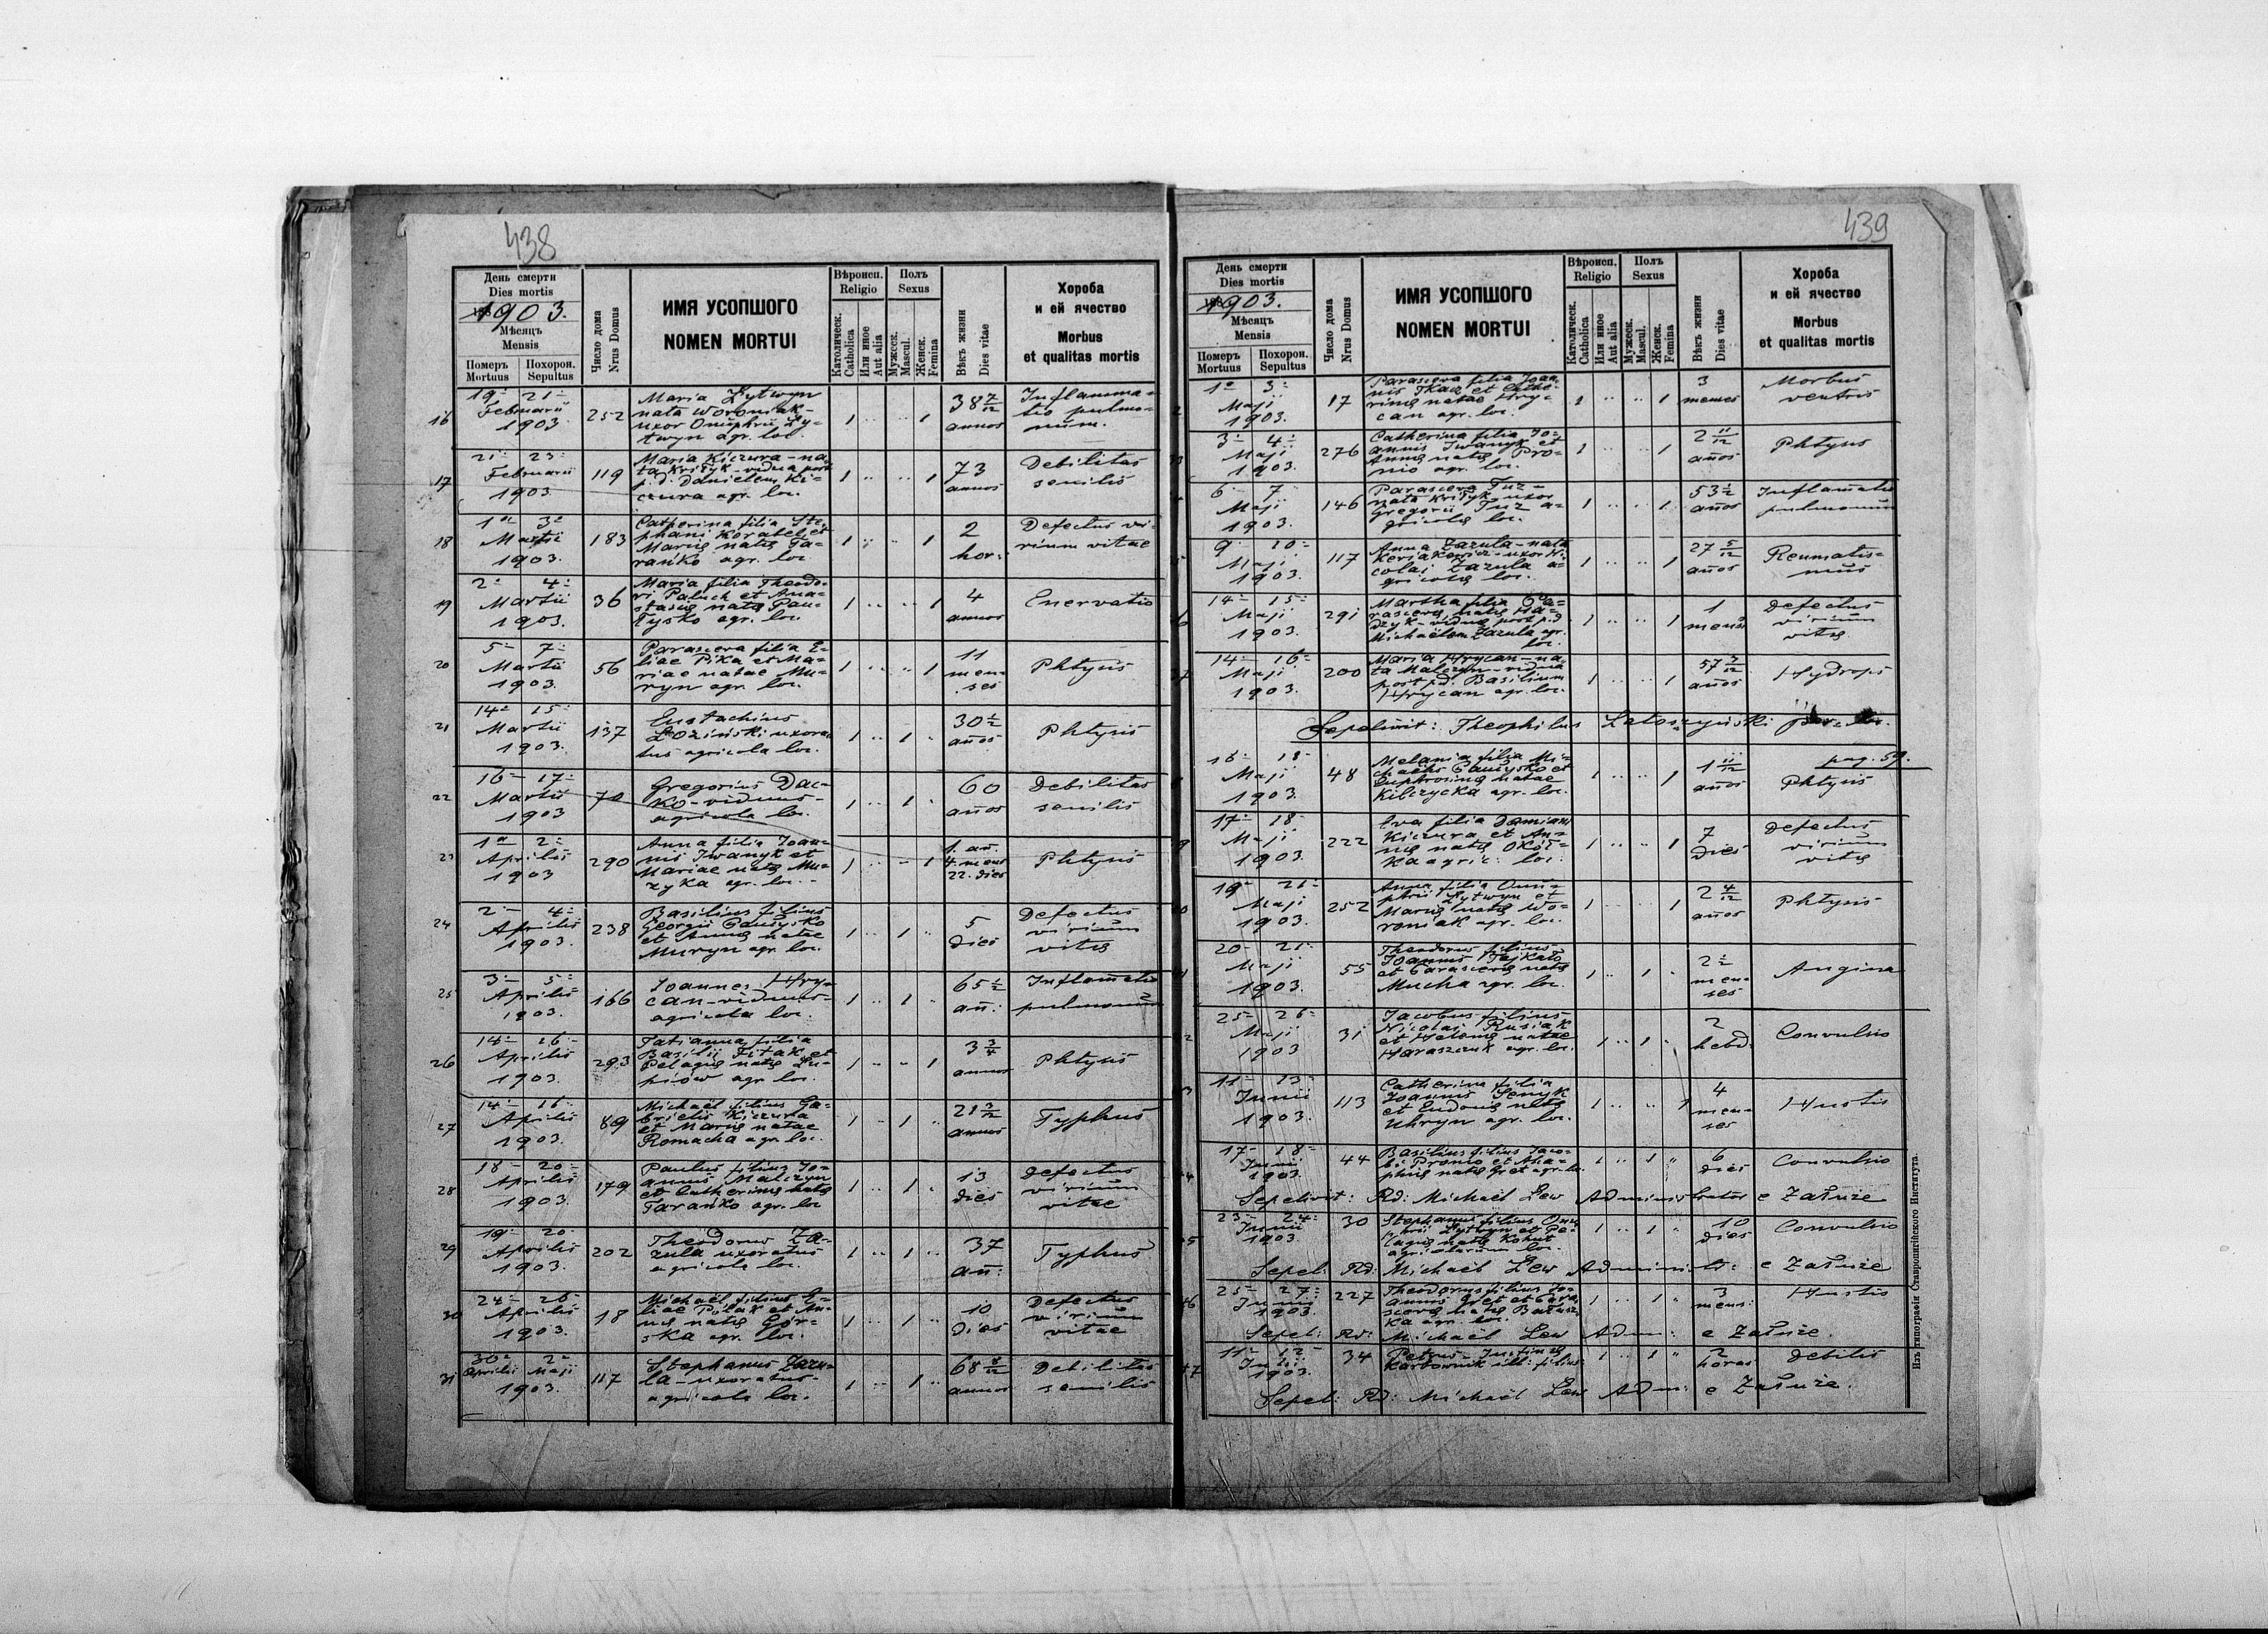 438
День смерти
Dies mortis
1903.
Мѣсяцъ
Mensis
Померъ Похорон.
Mortuus Sepultus
Число дома
Nrus Domus
ИМЯ УСОПШОГО
NOMEN MORTUI
Вѣроисп.
Religio
Католическ.
Catholica
Или иное
Aut alia
Полъ
Sexus
Мужеск.
Mascul.
Женск.
Femina
Вѣкъ жизни
Dies vitae
Хороба
и ей ячество
Morbus
et qualitas mortis
16 19 21 Februarii 1903 252
Maria Lytwyn
nata Woroniak-
uxor Onuphrii Ly-
twyn agr. loc.
1 1 38 7/12 annos
Inflamma-
tio pulmo-
num.
17 21 23 Februarii 1903 119
Maria Kiczura-na-
ta Kriłyk-vidua post
p. d. Danielem Ki-
czura agr. loc.
1 1 73 annos
Debilitas
senilis
18 1 3 Martii 1903. 183
Catherina filia Ste-
phani Korabel et
Mariæ natæ Ta-
ranko agr. loc
1 1 2 hor:
Defectus vi-
rium vitae
19 2 4 Martii 1903. 36
Maria filia Theodo-
ri Paluch et Ana-
stasiæ natæ Pau-
łysko agr. loc.
1 1 4 annos
Enervatio
20 5 7 Martii 1903. 56
Parascera filia E-
liae Pika et Ma-
riae natae Mu-
ryn agr. loc.
1 1 11 men-
ses
Phtysis
21 14 15 Martii 1903. 137
Eustachius
Łoziński uxora-
tus agricola loc.
1 1 30 1/2 años
Phtysis
22 16 17 Martii 1903 70
Gregorius Dac-
ko-viduus-
agricola loc.
1 1 60 años
Debilitas
senilis
23 1 2 Aprilis 1903 290
Anna filia Joan-
nis Iwanyk et
Mariae natæ Mu-
zyka agr. loc.
1 1 1. an.
4. mens
22. dies
Phtysis
24 2 4 Aprilis 1903. 238
Basilius filius
Georgii Paułysko
et Annæ natae
Muryn agr. loc.
1 1 5 dies
Defectus
virium
vitæ
25 3 5 Aprilis 1903. 166
Joannes Hry-
can-viduus-
agricola loc.
1 1 65 1/2 an:
Inflamatio
pulmonum
26 14 16 Aprilis 1903. 293
Tatianna filia
Basilii Fitak et
Pelagiæ natæ Łu-
piów agr. loc.
1 1 3 3/4 annos
Phtysis
27 14 16 Aprilis 1903. 89
Michaël filius Ga-
brielis Kiczura
et Mariæ natae
Romacha agr. loc.
1 1 21 3/12 annos
Typhus
28 18 20 Aprilis 1903. 179
Paulus filius Jo-
annis Malczyn
et Catherinæ natæ
Taranko agr. loc
1 1 13 dies
Defectus
virium
vitae
29 19 20 Aprilis 1903. 202
Theodorus Za-
zula uxoratus
agricola loc.
1 1 37 an:
Typhus
30 24 26 Aprilis 1903. 18
Michaël filius E-
liae Polak et An-
næ natæ Gór-
ska agr. loc.
1 1 10 dies
Defectus
virium
vitae
31 30 Aprilis 2 Maji 1903. 117
Stephanus Zazu-
la-uxoratus-
agricola loc.
1 1 68 8/12 annos
Debilitas
senilis
439
День смерти
Dies mortis
1903.
Мѣсяцъ
Mensis
Померъ Похорон.
Mortuus Sepultus
Число дома
Nrus Domus
ИМЯ УСОПШОГО
NOMEN MORTUI
Вѣроисп.
Religio
Католическ.
Catholica
Или иное
Aut alia
Полъ
Sexus
Мужеск.
Mascul.
Женск.
Femina
Вѣкъ жизни
Dies vitae
Хороба
и ей ячество
Morbus
et qualitas mortis
1 3 Maji 1903. 17
Parascera filia Joan-
nis Tkacz et Cathe-
rinæ natae Hry-
can agr. loc.
1 1 3 menses
Morbus
ventris
3 4 Maji 1903. 276
Catherina filia Jo-
annis Iwanyk et
Annæ natæ Pro-
nio agr. loc.
1 1 2 11/12 años
Phtysis
6 7 Maji 1903. 146
Parascera Tuz-
nata Kriłyk uxor
Gregorii Tuz a-
gricolæ loc.
1 1 53 1/2 años
Inflamatio
pulmonum
9 10 Maji 1903. 117
Anna Zazula-nata
Keriakewicz-uxor Ni-
colai Zazula a-
gricolæ loc.
1 1 27 5/12 años
Reumatis-
mus
14 15 Maji 1903. 291
Martha filia Pa-
rasceræ natæ Ha-
dzyk-viduæ post p. d
Michaëlem Zazula agr.
loc.
1 1 1 mens
Defectus
virium
vitæ
14 16 Maji 1903. 200
Maria Hrycan-na-
ta Malczyn-vidua
post p.d. Basilium
Hrycan agr. loc.
1 1 57 3/12 años
Hydrops
Sepelivit: Theophilus Latoszyński par. loc.
pag. 59.
16 18 Maji 1903. 48
Melania filia Mi-
chaëlis Paułysko et
Euphrosinæ natae
Kilczycka agr. loc.
1 1 1 11/12 años
Phtysis
17 18 Maji 1903. 222
Eva filia Damiani
Kiczura et An-
næ natæ Okół-
ka agric: loc.
1 1 7 dies
Defectus
virium
vitæ
19 21 Maji 1903. 252
Anna filia Onu-
phrii Lytwyn et
Mariæ natæ Wo-
roniak agr. loc.
1 1 2 4/12 años
Phtysis
20 21 Maji 1903. 55
Theodorus filius
Joannis Fajkało
et Parasceræ natæ
Mucha agr. loc.
1 1 2 1/2 men-
ses
Angina
25 26 Maji 1903 31
Jacobus filius
Nicolai Rusiak
et Helenæ natae
Haraszczuk agr. loc.
1 1 2 hebd:
Convulsio
11 13 Junii 1903. 113
Catherina filia
Joannis Senyk
et Eudoxiæ natæ
Uhryn agr. loc.
1 1 4 men-
ses
Hustis
17 18 Junii 1903. 44
Basilius filius Jaco-
bi Pronio et Aga-
phiæ natæ Gret agr. loc.
1 1 6 dies
Convulsio
Sepelivit: Rd: Michaël Lew Administrator e Załuże
23 24 Junii 1903. 30
Stephanus filius Onu-
phrii Lytwyn et Pe-
lagiæ natæ Kohut
agricolarum loc.
1 1 10 dies
Convulsio
Sepel: Rd: Michaël Lew Administr: e Załuże
25 27 Junii 1903. 227
Theodorus filius Jo-
annis Gret et Para-
sceræ natæ Bałusz-
ka agr. loc.
1 1 3 mens:
Hustis
Sepel: Rd: Michaël Lew Adm: e Załuże.
11 12 1903. 34
Petrus-Justinus
Karbownik ill: filius
1 1 2 horas
Debilis
Sepel: Rd: Michaël Lew Adm: e Załuże.
Изъ типографіи Ставропигійского Института.